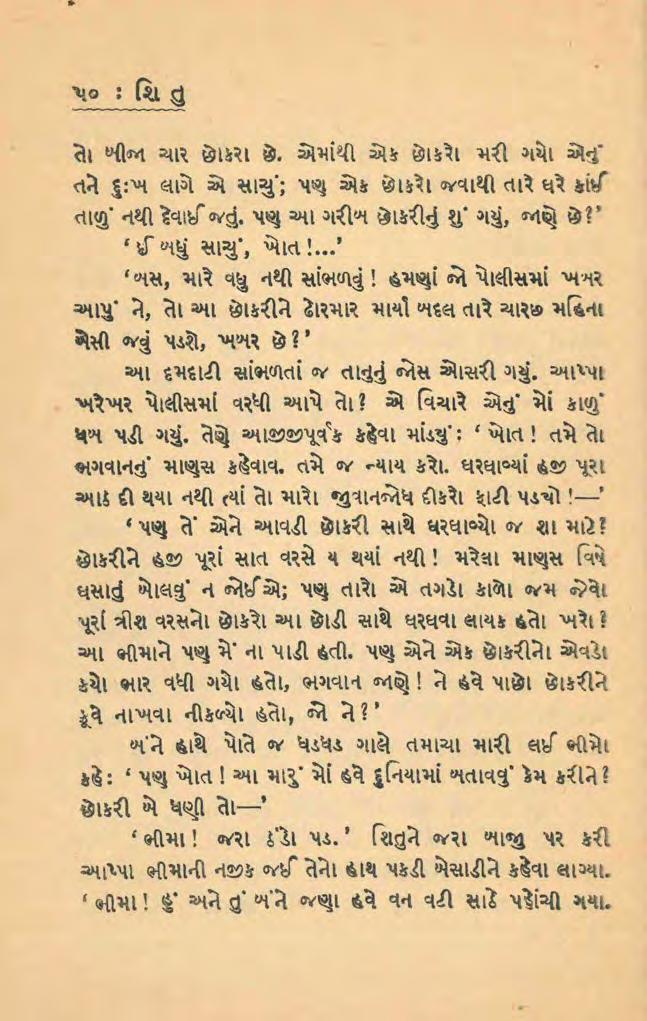 ૫૦ : શિ તુ
તો બીજા ચાર છોકરા છે. એમાંથી એક છોકરો મરી ગયો એનું
તને દુઃખ લાગે એ સાચું; પણ એક છોકરો જવાથી તારે ઘરે કાંઈ
તાળું નથી દેવાઈ જતું. પણ આ ગરીબ છોકરીનું શું ગયું, જાણે છે?’
‘ ઈ બધું સાચું, ખોત !...’
‘બસ, મારે વધુ નથી સાંભળવું ! હમણાં જો પોલીસમાં ખબર
આપું ને, તો આ છોકરીને ઢોરમાર માર્યા બદલ તારે ચારછ મહિના
બેસી જવું પડશે, ખબર છે ?’
આ દમદાટી સાંભળતાં જ તાનુનું જોસ ઓસરી ગયું. આપ્પા
ખરેખર પોલીસમાં વરધી આપે તો? એ વિચારે એનું મોં કાળું
ધબ પડી ગયું. તેણે આજીજીપૂર્વક કહેવા માંડ્યું : ‘ ખોત ! તમે તો
ભગવાનનું માણસ કહેવાવ. તમે જ ન્યાય કરો. ઘરઘાવ્યાં હજી પૂરા
આઠ દી થયા નથી ત્યાં તો મારો જુવાનજોધ દીકરો ફાટી પડ્યો !—’
‘ પણ તેં એને આવડી છોકરી સાથે ઘરઘાવ્યો જ શા માટે?
છોકરીને હજી પૂરાં સાત વરસે ય થયાં નથી ! મરેલા માણસ વિષે
ઘસાતું બોલવું ન જોઈએ; પણ તારો એ તગડો કાળો જમ જેવો
પૂરાં ત્રીશ વરસનો છોકરો આ છોડી સાથે ઘરઘવા લાયક હતો ખરો ?
આ ભીમાને પણ મેં ના પાડી હતી. પણ એને એક છોકરીનો એવડો
કયો ભાર વધી ગયો હતો, ભગવાન જાણે ! ને હવે પાછો છોકરીને
કૂવે નાખવા નીકળ્યો હતો, જો ને ?’
બંને હાથે પોતે જ ધડધડ ગાલે તમાચા મારી લઈ ભીમો
કહે : ‘ પણ ખોત ! આ મારું મોં હવે દુનિયામાં બતાવવું કેમ કરીને?
છોકરી બે ધણી તો—’
‘ભીમા ! જરા ઠંડો પડ.’ શિતુને જરા બાજુ પર કરી
આપ્પા ભીમાની નજીક જઈ તેનો હાથ પકડી બેસાડીને કહેવા લાગ્યા.
‘ ભીમા ! હું અને તું બંને જણા હવે વન વટી સાઠે પહોંચી ગયા.